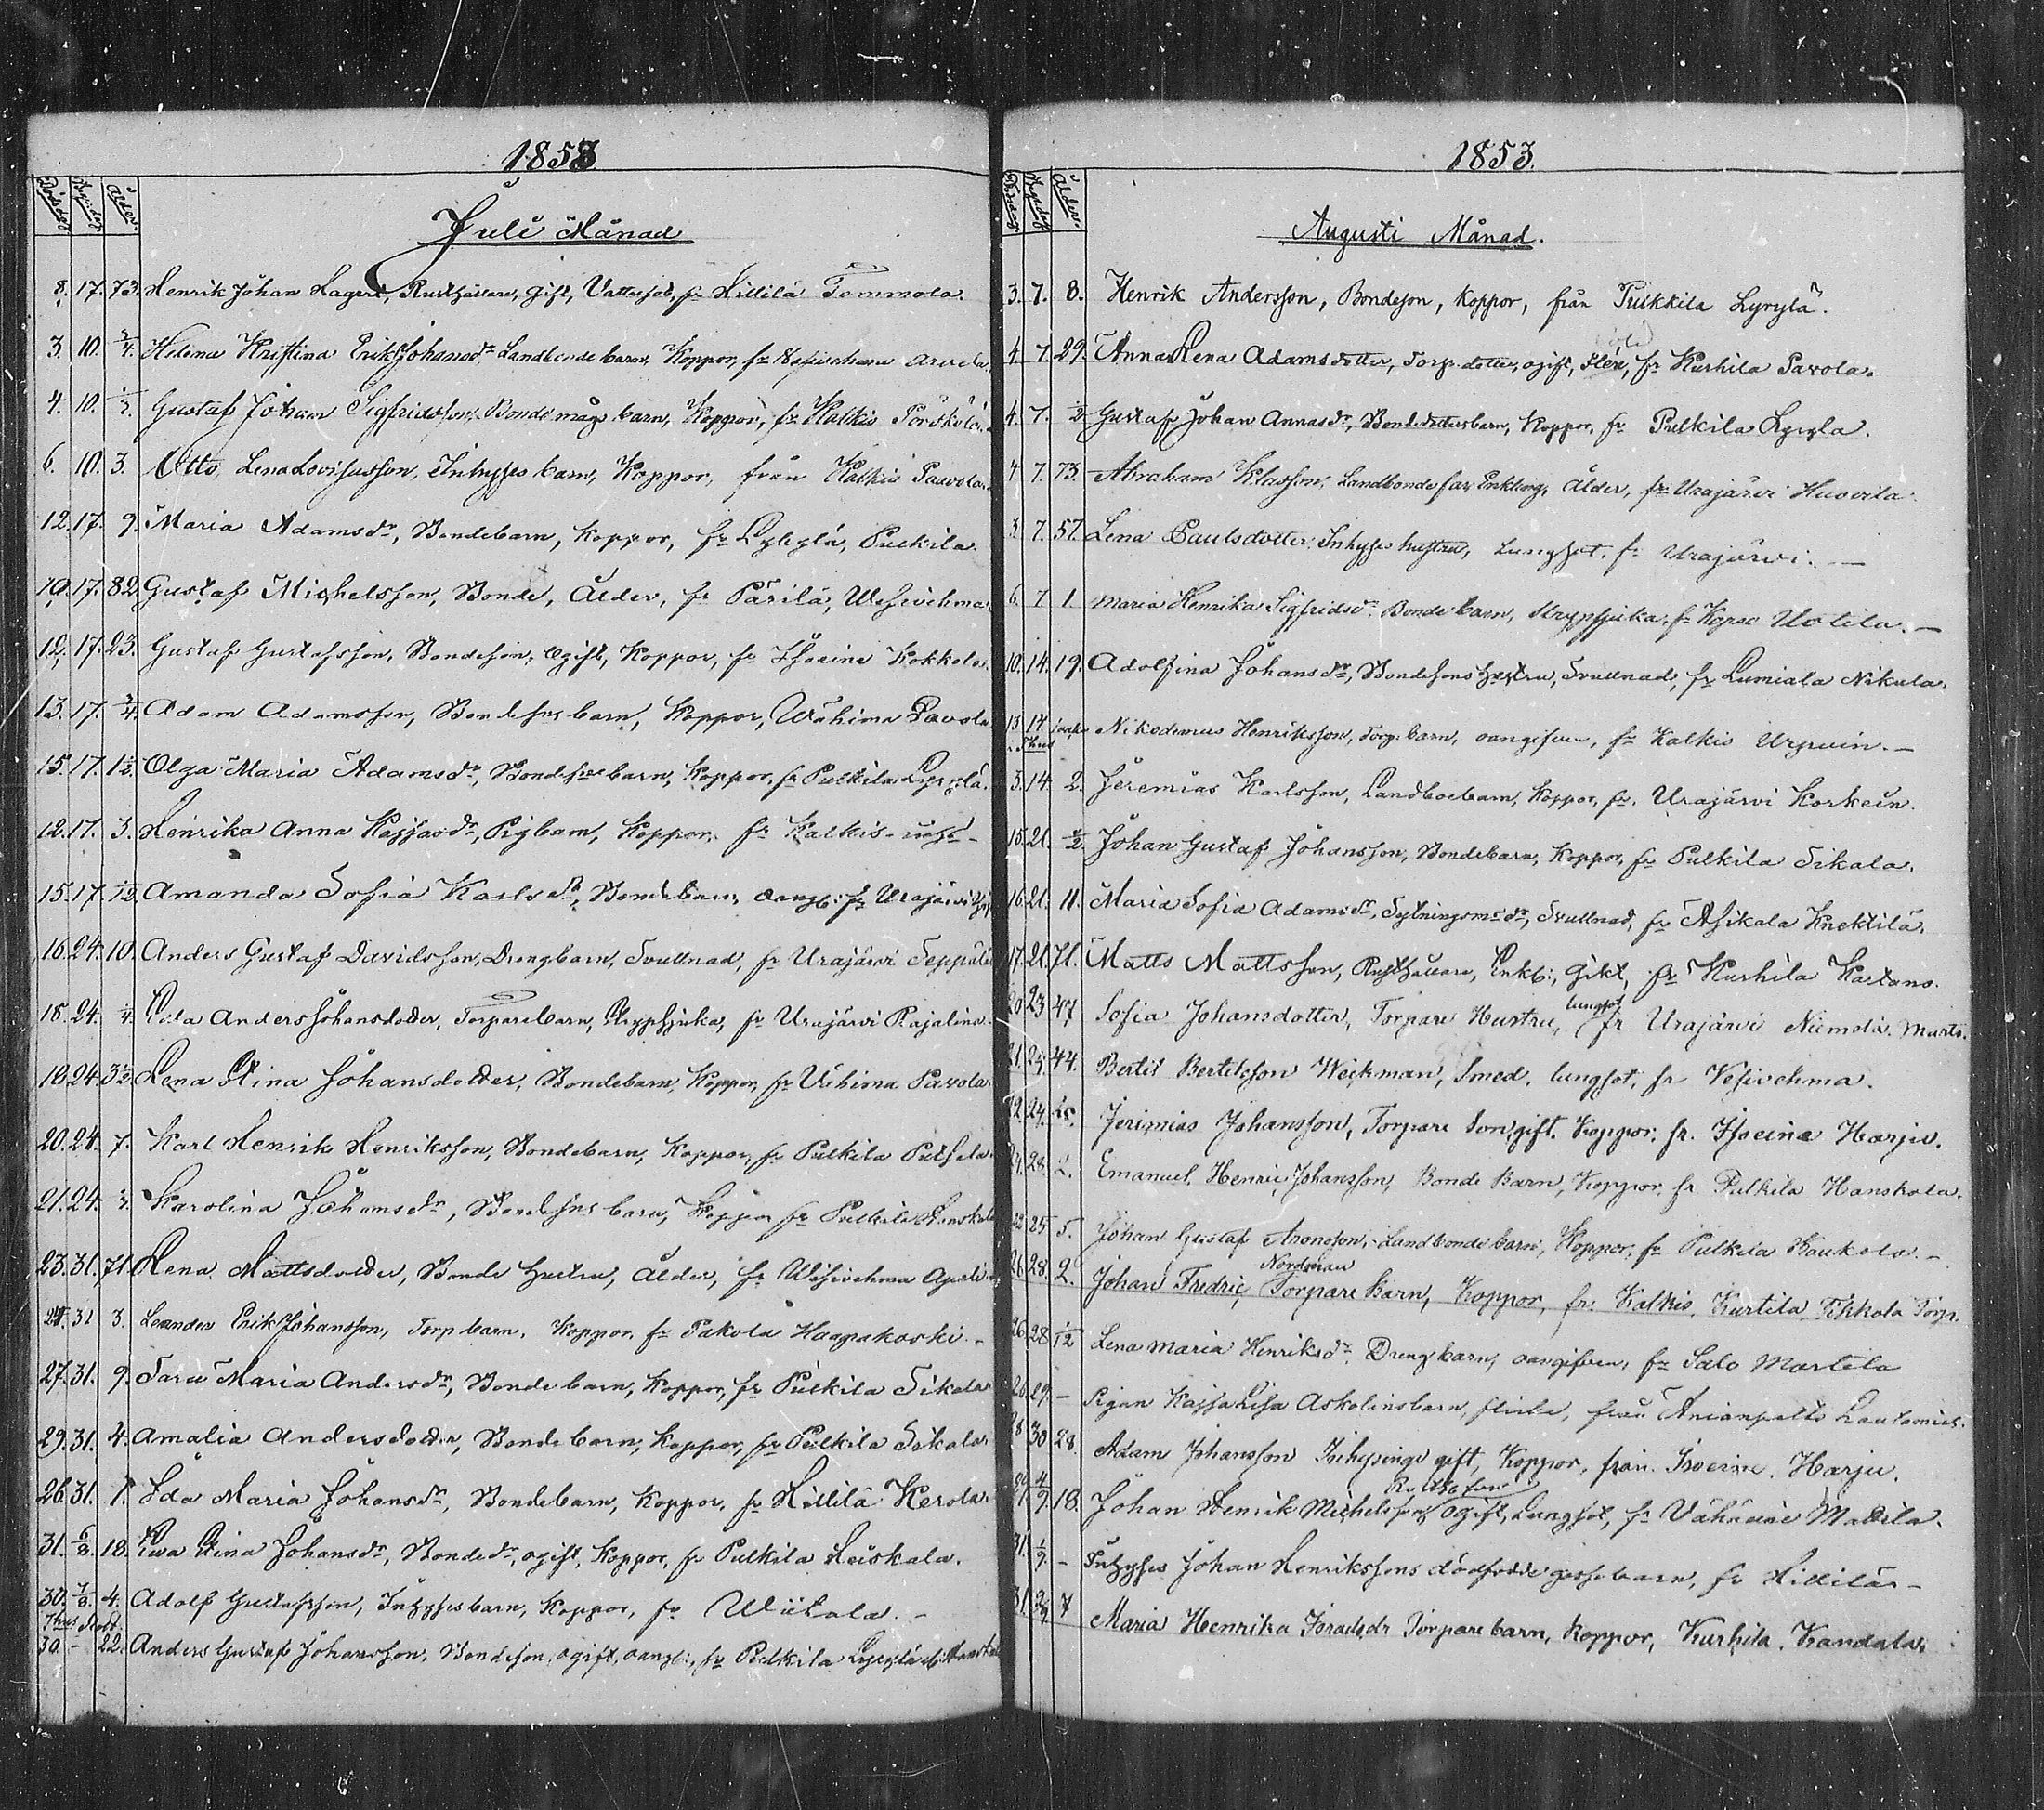 1853
Dödsdag Begr.dag Ålder.
Juli Månad
8. 17. 73. Henrik Johan Lagert, Rusthållare, gift, Vattusot, fr Hillilä Tommola.
3. 10. Helena Kristina ErikJohansdr Landbonde barn, Koppor, fr Vesivehma Arvela.
4. 10. Gustaf Johan Sigfridsson, Bonde mågs barn, Koppor, fr Kalkis
6. 10. 3. Otto, LenaLovisasson, Inhyses barn, Koppor, från Kalkis Paavola.
12. 17. 9. Maria Adamsdr, Bondebarn, Koppor, fr Lyrylä, Pulkila.
10. 17. 82. Gustaf Michelsson, Bonde, Ålder, fr Pärilä, Wesivehma
12. 17. 23. Gustaf Gustafsson, Bondeson, Ogift, Koppor, fr Isoeine Kokkola.
13. 17. 3/4. Adam Adamsson, Bondesons barn, Koppor, Wähima Pavola
15. 17. 1 1/2. Olga Maria Adamsdr, Bondesons barn, Koppor, fr Pulkila Lyrylä.
12. 17. 3. Henrika Anna Kajsasdr, Pigbarn, Koppor, fr Kalkis
15. 17. 1/12. Amanda Sofia Karlsdr, Bondebarn, oangf. fr Urajärvi
16. 24. 10. Anders Gustaf Davidsson, Drengbarn, Svullnad, fr Urajärvi Seppälä
18. 24. 1/4. Eda AndersJohansdotter, Torparebarn, Strypsjuka, fr Urajärvi Rajalina.
18. 24. 3 1/2. Lena Stina Johansdotter, Bondebarn, Koppor, fr Pavola.
20. 24. 7. Karl Henrik Henriksson, Bondebarn, Koppor, fr Pulkila
21. 24. Karolina Johansdr, Bondesons barn, Koppor fr Pulkila
23. 31. 71. Lena Mattsdotter, Bonde Hustru, ålder, fr Wesivehma
24. 31 3. Leander ErikJohansson, Torp barn, Koppor, fr Pakola Haapakoski. -
27. 31. 9. Sara Maria Andersdr, Bonde barn, Koppor, fr Pulkila Sikala
29. 31. 4. Amalia Andersdotter, Bonde barn, Koppor, fr Pulkila Sikala.
26. 31. 7. Ida Maria Johansdr, Bondebarn, Koppor, fr Hillilä Kerola.
31. 6/8. 18. Ewa Stina Johansdr, Bondedr, ogift, Koppor, fr Pulkila Heiskala.
30. 7/8. 4. Adolf Gustafsson, Inhysesbarn, Koppor, fr Wiitala. -
30. - 22. Anders Gustaf Johansson, Bondeson, ogift, oangf., fr Pulkila Lyrylä
1853.
Dödsdag Begr.dag Ålder.
Augusti Månad.
3. 7. 8. Henrik Andersson, Bondeson, Koppor, från Pulkkila Lyrylä.
4. 7. 29. Anna Lena Adamsdotter, Torp. dotter, ogift, fr Kurhila Pavola.
4. 7. 1/2 Gustaf Johan Annasdr, Bondedottersbarn, Koppor, fr Pulkila Lyryla.
4 7. 73. Abraham Klasson, Landbonde far, Enkling, ålder, fr Urajärvi Huovila.
3. 7. 57. Lena Paulsdotter, Inhyses hustru, Lungsot. fr Urajärvi. -
6. 7 1. Maria Henrika Sigfridsdr Bonde barn, Strypsjuka, fr Kopso Uotila. -
10. 14. 19. Adolfina Johansdr, Bondesons Hustru, Svullnad, fr Lumiala Nikula.
13. 14 Nikodemus Henriksson, Torp. barn, oangifven, fr Kalkis Urpuin. -
3. 14. 2. Jeremias Karlsson, Landbobarn, Koppor, fr. Urajärvi Korkein.
15. 21. 1/2. Johan Gustaf Johansson, Bondebarn, Koppor, fr Pulkila Sikala.
16. 21. 11. Maria Sofia Adamsdr, Sytningsm: dr, Svullnad, fr Asikala Knektilä.
17. 21. 71. Matts Mattsson, Rusthållare, Enkl:, Gikt, fr Kurhila Kartano.
lungsot
20 23 47 Sofia Johansdotter, Torpare Hustru, fr Urajärvi Niemolä. Marts.
21. 25. 44. Bertil Bertilsson Weckman, Smed, lungsot, fr Vesivehma.
22. 24. Jerimias Johansson, Torpare Son, gift. Koppor. fr. Isoeina Harju.
24. 28. 2. Emanuel Henric Johansson, Bonde Barn, Koppor, fr Pulkila Hanskala.
22 25 5. Johan Gustaf Aronsson, Landbonde barn, Koppor, fr Pulkila Kaukola. -
Nordman
26. 28. 2. Johan Fredric, Torpare Barn, Koppor, fr. Kalkis, Kurtila Tikkola Torp.
26 28 1/12 Lena Maria Henriksdr. Dreng barn, oangifven, fr Salo Martila
26. 29. - Pigan Kajsa Lisa Askolinsbarn, flicka, från Anianpelto
28 30 28. Adam Johansson Inhysinge gift, Koppor, från Isoeine. Harju.
29. 4/9. 18. Johan Henrik Michelsson ogift, Lungsot, fr Vähäeine Mattila.
31. 1/9. - Inhyses Johan Henrikssons dödfödde gossebarn, fr Hillilä -
31. 2/9 7 Maria Henrika Israelsdr Torpare barn, Koppor, Kurhila. Kandala.